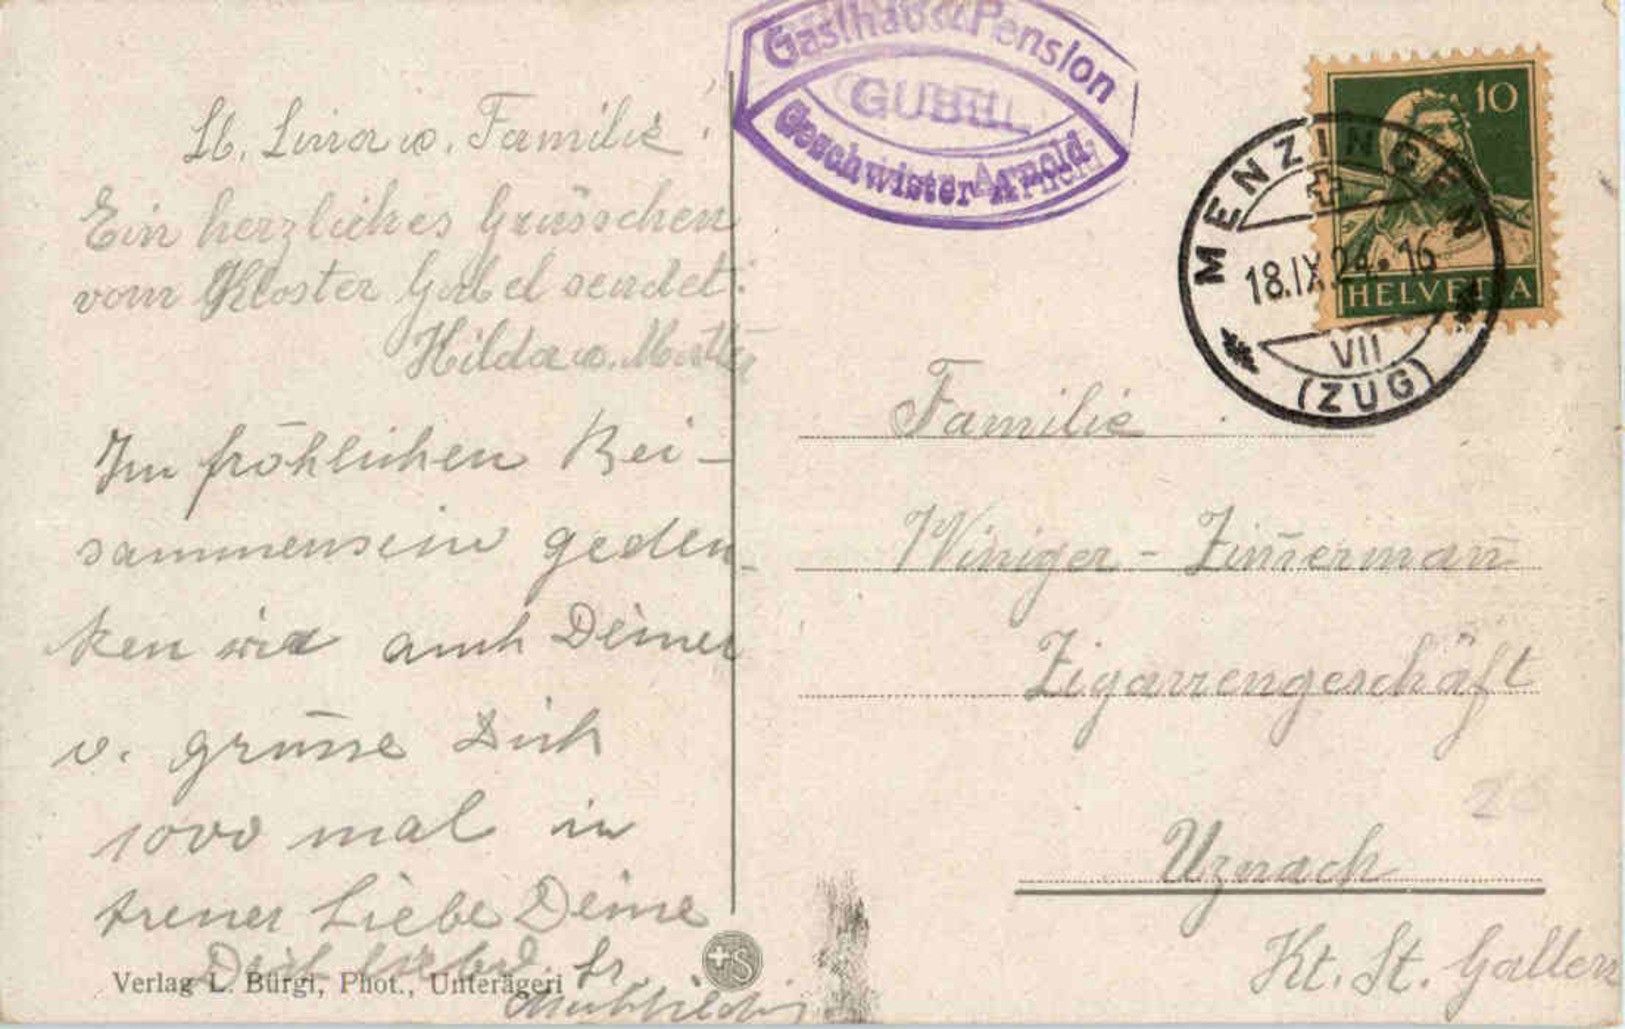 Gasthaus & Pension
GUBEL
Geschwister Arnold
10
HELVETIA
MENZINGEN
18.IX.24. 16
VII
(ZUG)
Lb. Lina u. Familie!
Ein herzliches Grüsschen
vom Kloster Gubel sendet:
Hilda u. Mutter
Im fröhlichen Bei-
sammensein geden-
ken wir auch Deiner
u. grüsse Dich
1000 mal in
treuer Liebe Deine
Dich liebd. Sr.
Verlag L. Bürgi, Phot., Unterägeri
S
Familie
Winiger - Zim̄erman̄
Zigarrengeschäft
Uznach
Kt. St. Gallen